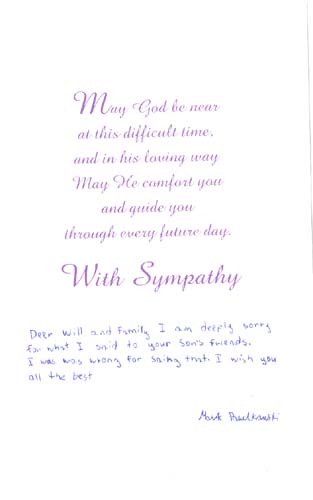 May God be near
at this difficult time,
and in his loving way
May He comfort you
and guide you
through every future day.
With Sympathy
Dear Will and Family I am deeply sorry
for what I said to your son's friends.
I was was wrong for saing that. I wish you
all the best
Mark